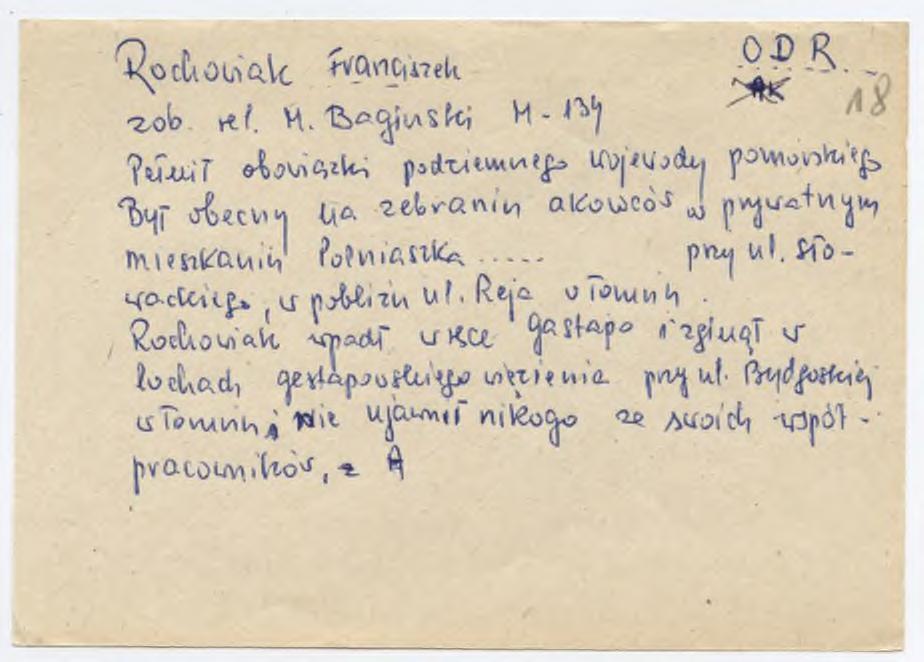 Rochowiak Franciszek ODR
AK 18
zob. rel. M. Bagiński M-134
Pełnił obowiązki podziemnego wojewody pomorskiego
Był obecny na zebraniu akowców w prywatnym
mieszkaniu Polniaszka ..... przy ul. Sło-
wackiego, w pobliżu ul. Reja w Toruniu.
Rochowiak wpadł w ręce gestapo i zginął w
lochach gestapowskiego więzienia przy ul. Bydgoskiej
w Toruniu; nie ujawnił nikogo ze swoich współ-
pracowników, z A